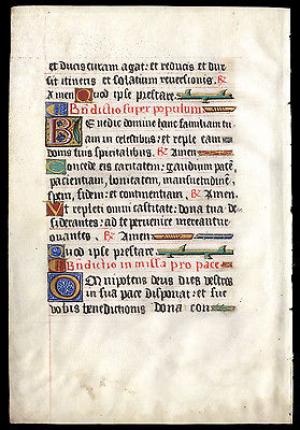 et ducis curam agat: et reducis et dux
sit itineris et solatium reversionis. R
Amen Quod ipse prestare
Bñdictio super populum
Benedic domine hanc familiam tu
am in celestibus: et reple eam
donis tuis spiritalibus. R Amen
Concede eis caritatem: gaudium pacē,
pacientiam, bonitatem, mansuetudinē,
spem, fidem: et continentiam. R Amen.
Ut repleti omni castitate: dona tua de
siderantes: ad te pervenire mereantur
ovantes. R Amen
Quod ipse prestare
Bñdictio in missa pro pace
Omnipotens deus dies vestros
in sua pace disponat: et sue
vobis benedictionis dona con